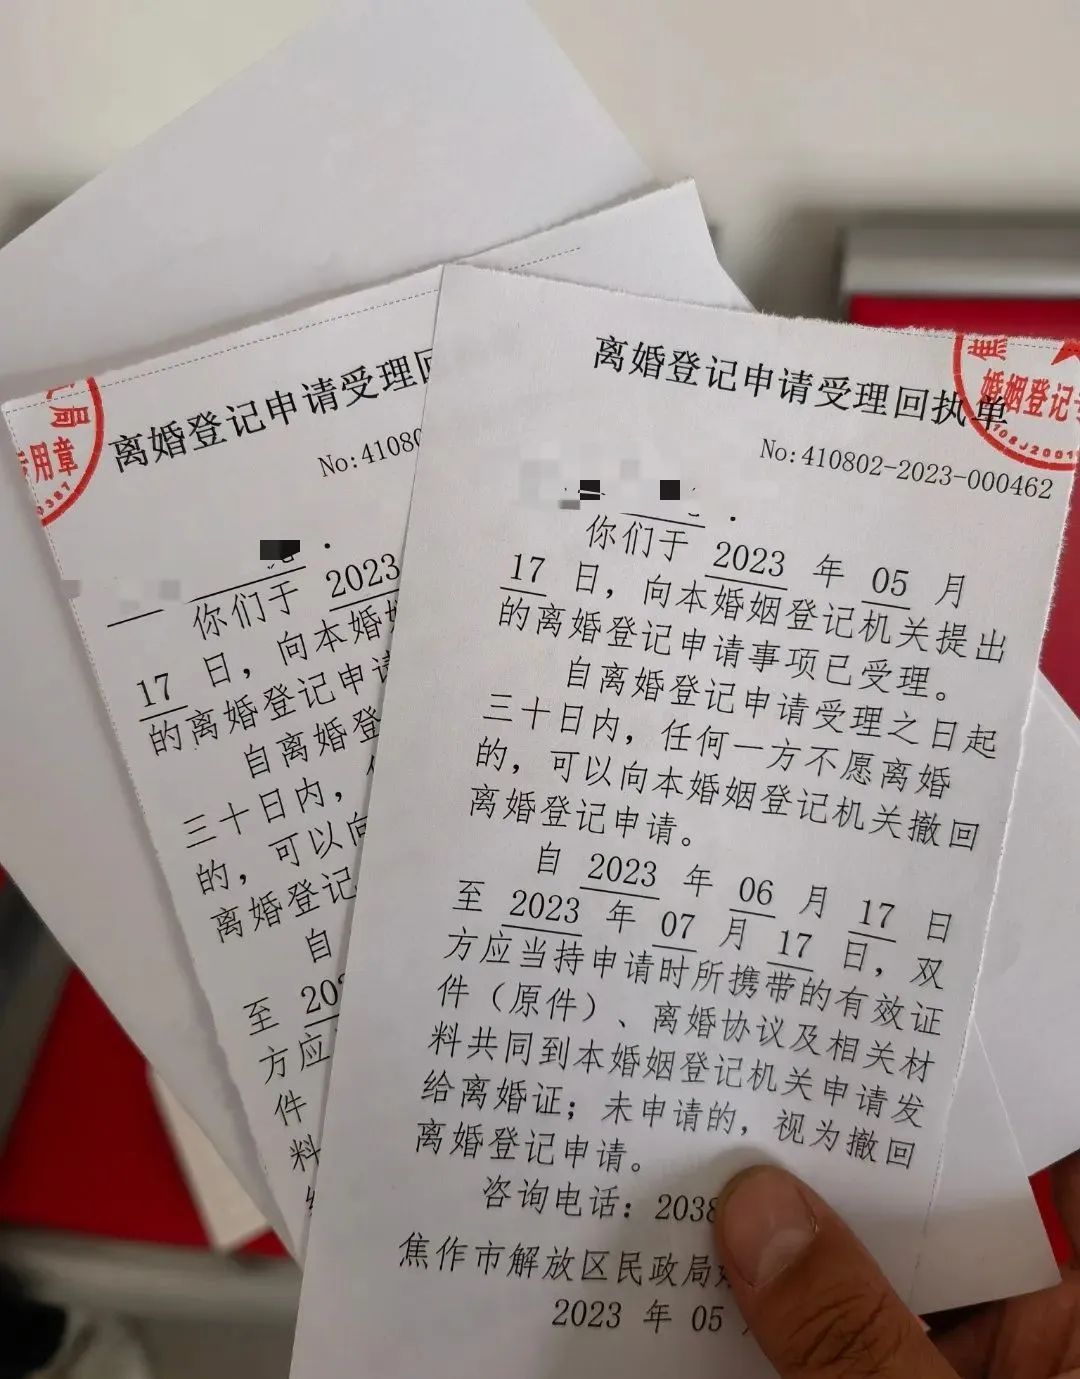 离婚登记申请受理回
No:41080
你们于 2023
17 日，向本婚姻
的离婚登记申请
自离婚登
三十日内，
的，可以向
离婚登记
自
至 20
方应
件
料
局
专用章
离婚登记申请受理回执单
No:410802-2023-000462
你们于 2023 年 05 月
17 日，向本婚姻登记机关提出
的离婚登记申请事项已受理。
自离婚登记申请受理之日起
三十日内，任何一方不愿离婚
的，可以向本婚姻登记机关撤回
离婚登记申请。
自 2023 年 06 月 17 日
至 2023 年 07 月 17 日，双
方应当持申请时所携带的有效证
件（原件）、离婚协议及相关材
料共同到本婚姻登记机关申请发
给离婚证；未申请的，视为撤回
离婚登记申请。
咨询电话：2038
焦作市解放区民政局
2023 年 05
焦
婚姻登记专